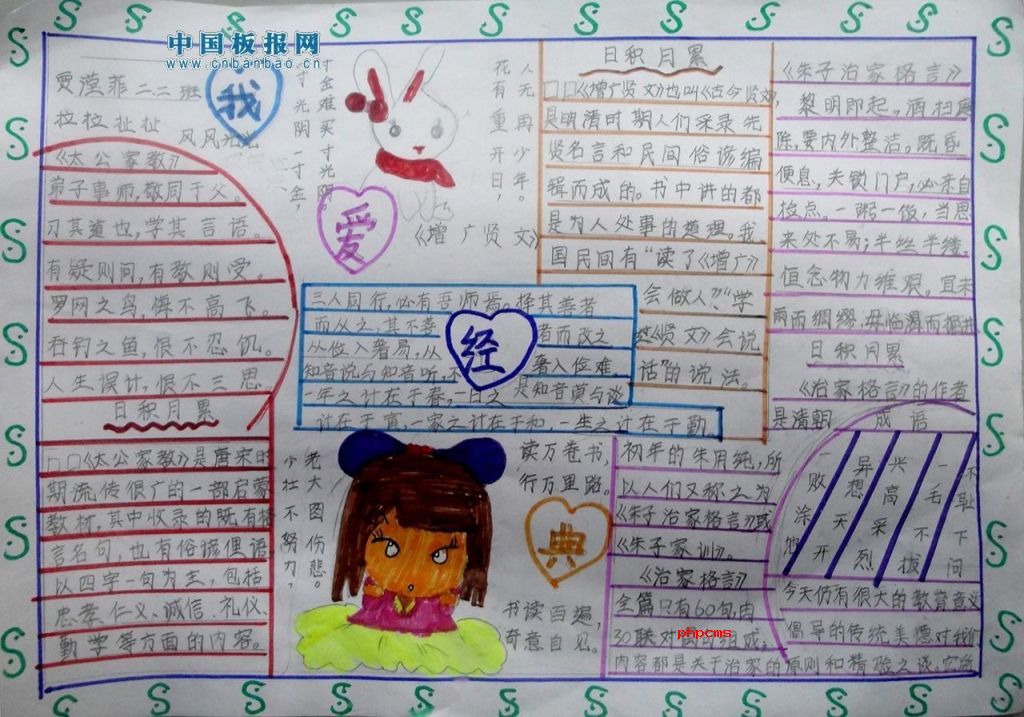 中国板报网
www.cnbanbao.cn
我
爱
经
典
贾滢菲二二班
拉拉扯扯
风风光光
《太公家教》
弟子事师,敬同于父。
习其道也,学其言语。
有疑则问,有教则受。
罗网之鸟,悔不高飞。
吞钓之鱼,恨不忍饥。
人生误计,恨不三思。
日积月累
口口《太公家教》是唐宋时
期流传很广的一部启蒙
教材,其中收录的既有格
言名句,也有俗谚俚语
以四字一句为主,包括
忠孝、仁义、诚信、礼仪、
勤学等方面的内容。
寸金难买寸光阴。
一寸光阴一寸金,
花有重开日,
人无再少年。
《增广贤文》
三人同行,必有吾师焉。择其善者
而从之,其不善者而改之
从俭入奢易,从奢入俭难
知音说与知音听,不是知音莫与谈
一年之计在于春,一日之
计在于寅,一家之计在于和,一生之计在于勤
少壮不努力,
老大图伤悲。
读万卷书,
行万里路。
书读百遍,
奇意自见。
日积月累
口口《增广贤文》也叫《古今贤文》
是明清时期人们采录先
贤名言和民间俗谚编
辑而成的。书中讲的都
是为人处事的道理。我
国民间有“读了《增广》
会做人”“学
《贤文》会说
话”的说法。
《朱子治家格言》
黎明即起,洒扫庭
除,要内外整洁。既昏
便息,关锁门户,必亲自
检点。一粥一饭,当思
来处不易;半丝半缕,
恒念物力维艰。宜未
雨而绸缪,毋临渴而掘井
日积月累
《治家格言》的作者
是清朝
初年的朱用纯,所
以人们又称之为
《朱子治家格言》或
《朱子家训》。
《治家格言》
全篇只有60句,由
30联对偶句组成,
phpcms
内容都是关于治家的原则和精验之谈。它所
倡导的传统美德对我们
今天仍有很大的教育意义
成语
一败涂地
异想天开
兴高采烈
一毛不拔
不耻下问